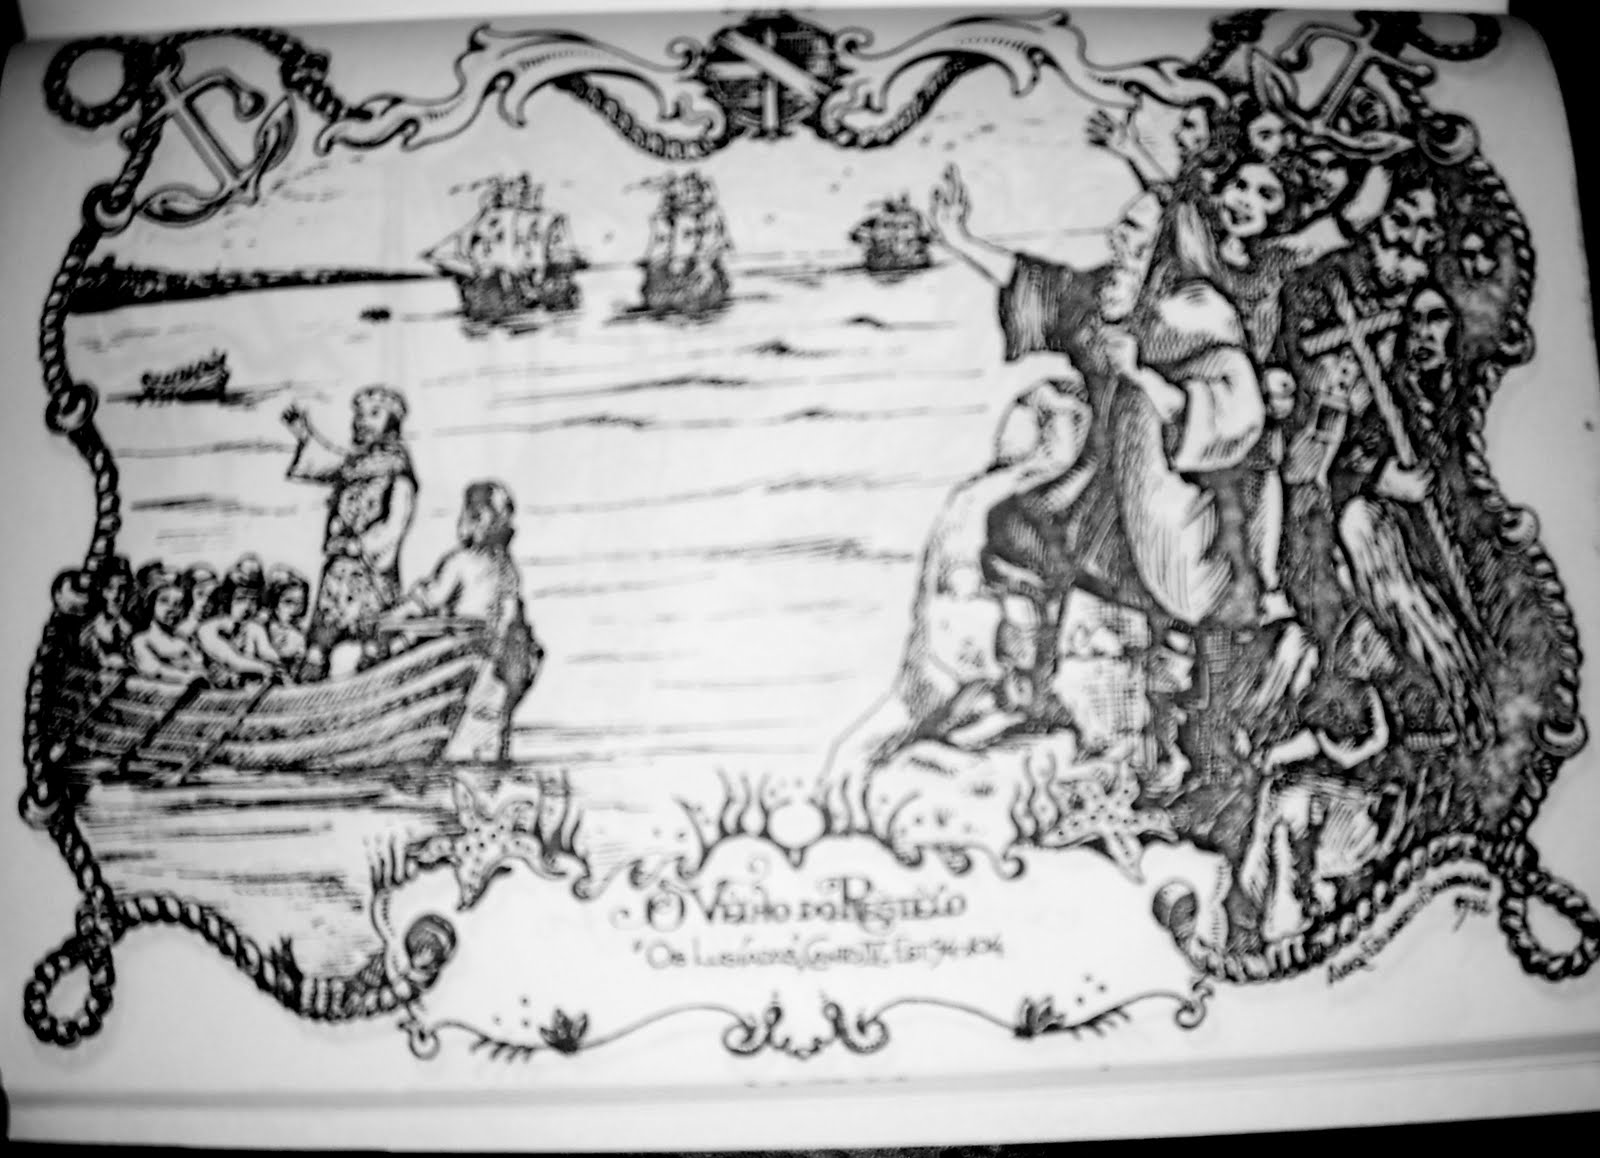 O Velho do Restelo
"Os Lusíadas", Canto IV, Est 94-104